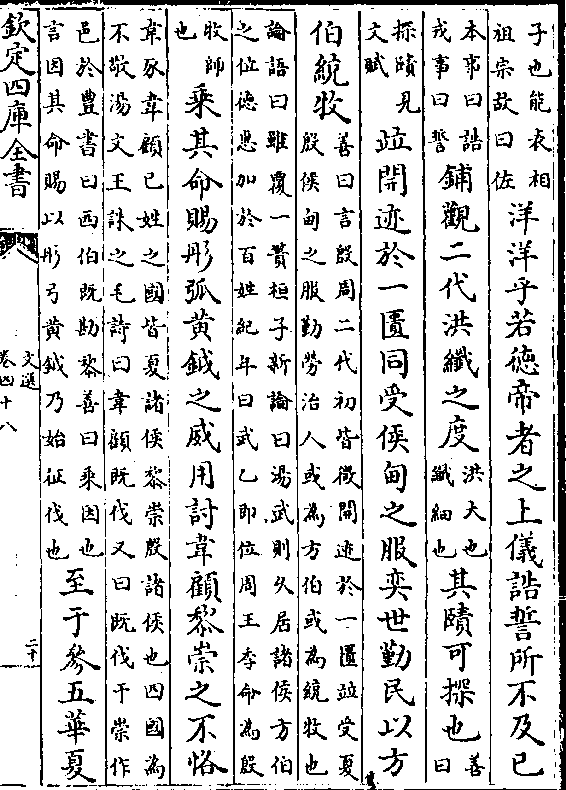 子也能表相
祖宗故曰佐
洋洋乎若德帝者之上儀誥誓所不及已
本事曰誥
戎事曰誓
鋪觀二代洪纖之度
洪大也
纖細也
其賾可探也
善曰
探賾見
文賦
竝開迹於一匱同受侯甸之服奕世勤民以方
伯統牧
善曰言殷周二代初皆微開迹於一匱竝受夏
殷侯甸之服勤勞治人或為方伯或為統牧也
論語曰雖覆一蕢桓子新論曰湯武則久居諸侯方伯
之位德惠加於百姓紀年曰武乙即位周王季命為殷
牧師
也
乘其命賜彤弧黃鉞之威用討韋顧黎崇之不恪
韋豕韋顧已姓之國皆夏諸侯黎崇殷諸侯也四國為
不敬湯文王誅之毛詩曰韋顧既伐又曰既伐于崇作
邑於豐書曰西伯既勘黎善曰乘因也
言因其命賜以彤弓黃鉞乃始征伐也
至于參五華夏
欽定四庫全書
文選
卷四十八
二十